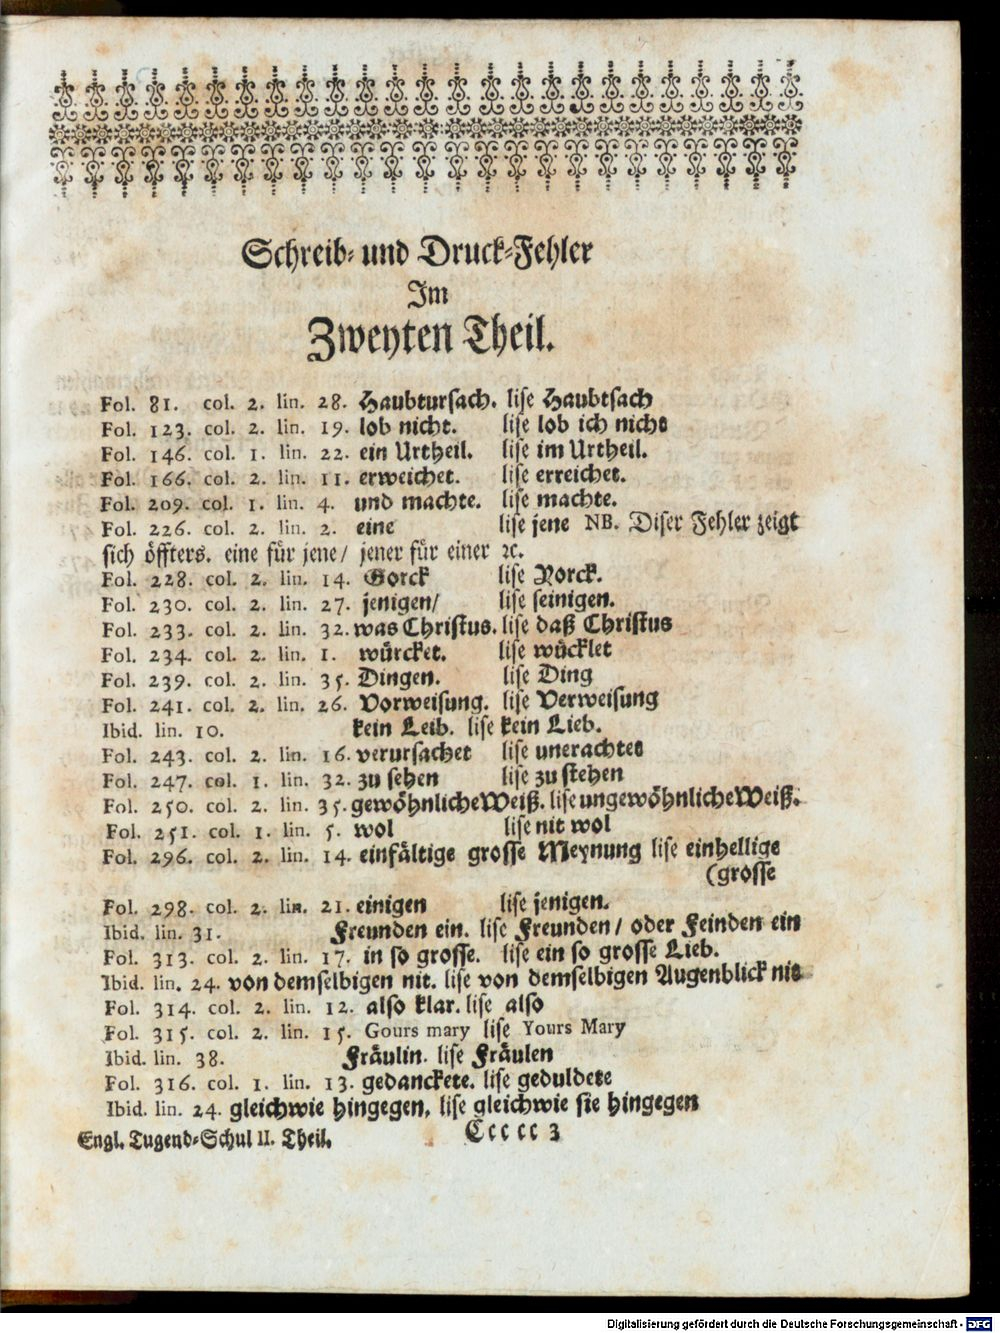 Schreib- und Druck-Fehler
Im
Zweyten Theil.
Fol. 81. col. 2. lin. 28. Haubtursach. lise Haubtsach
Fol. 123. col. 2. lin. 19. lob nicht. lise lob ich nicht
Fol. 146. col. 1. lin. 22. ein Urtheil. lise im Urtheil.
Fol. 166. col. 2. lin. 11. erweichet. lise erreichet.
Fol. 209. col. 1. lin. 4. und machte. lise machte.
Fol. 226. col. 2. lin. 2. eine lise jene NB. Diser Fehler zeigt
sich öffters. eine für jene/ jener für einer ꝛc.
Fol. 228. col. 2. lin. 14. Gorck lise Yorck.
Fol. 230. col. 2. lin. 27. jenigen/ lise seinigen.
Fol. 233. col. 2. lin. 32. was Christus. lise daß Christus
Fol. 234. col. 2. lin. 1. würcket. lise wücklet
Fol. 239. col. 2. lin. 35. Dingen. lise Ding
Fol. 241. col. 2. lin. 26. Vorweisung. lise Verweisung
Ibid. lin. 10. kein Leib. lise kein Lieb.
Fol. 243. col. 2. lin. 16. verursachet lise unerachtet
Fol. 247. col. 1. lin. 32. zu sehen lise zu stehen
Fol. 250. col. 2. lin. 35. gewöhnliche Weiß. lise ungewöhnliche Weiß.
Fol. 251. col. 1. lin. 5. wol lise nit wol
Fol. 296. col. 2. lin. 14. einfältige grosse Meynung lise einhellige
(grosse
Fol. 298. col. 2. lin. 21. einigen lise jenigen.
Ibid. lin. 31. Freunden ein. lise Freunden/ oder Feinden ein
Fol. 313. col. 2. lin. 17. in so grosse. lise ein so grosse Lieb.
Ibid. lin. 24. von demselbigen nit. lise von demselbigen Augenblick nit
Fol. 314. col. 2. lin. 12. also klar. lise also
Fol. 315. col. 2. lin. 15. Gours mary lise Yours Mary
Ibid. lin. 38. Fräulin. lise Fräulen
Fol. 316. col. 1. lin. 13. gedanckete. lise geduldete
Ibid. lin. 24. gleichwie hingegen, lise gleichwie sie hingegen
Engl. Tugend-Schul II. Theil. Ccc cc 3
Digitalisierung gefördert durch die Deutsche Forschungsgemeinschaft - DFG